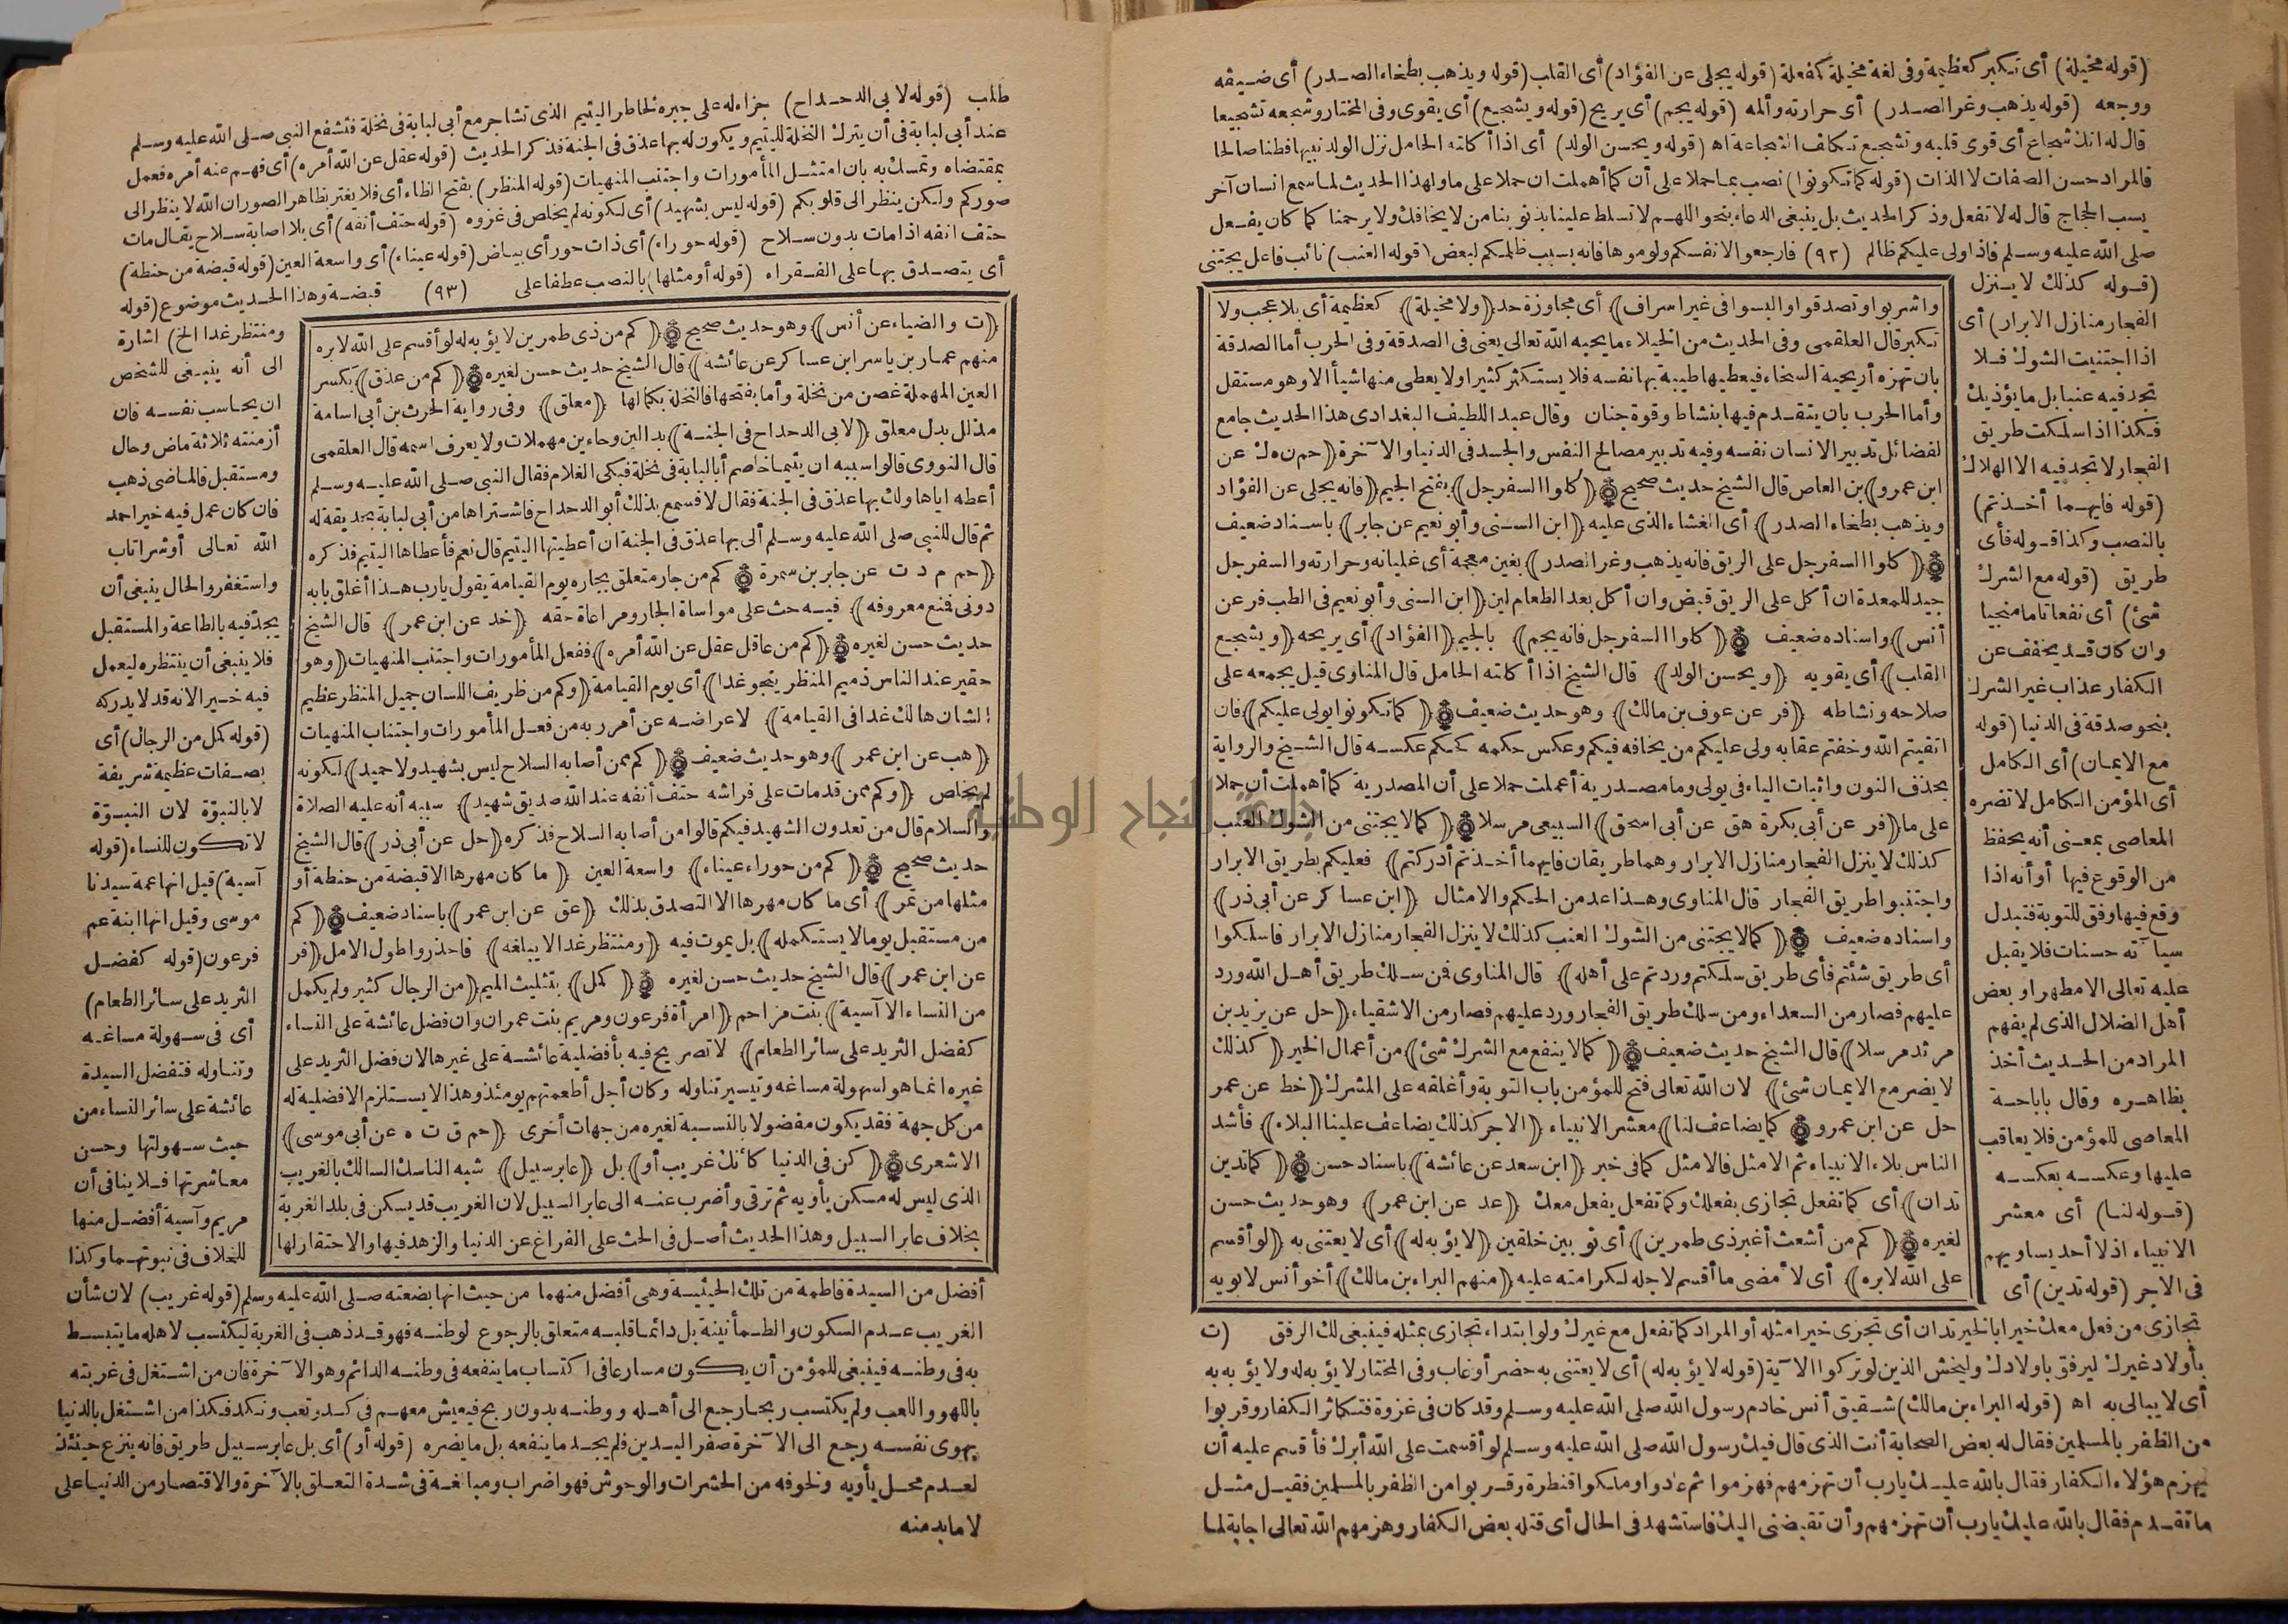 (قوله مخيلة) أى تكبر كعظيمة وفى لغة مخيلة كمفعلة (قوله يجلى عن الفؤاد) أى القلب (قوله ويذهب بطخاء الصدر) أى ضيقه
ووجعه (قوله يذهب وغر الصدر) أى حرارته وألمه (قوله يجم) أى يريح (قوله ويشجع) أى يقوى وفى المختار وشجعه تشجيعا
قال له انك شجاع أى قوى قلبه وتشجع تكلف الشجاعة اه (قوله ويحسن الولد) أى اذا أكلته الحامل نزل الولد نبيها فطنا صالحا
فالمراد حسن الصفات لا الذات (قوله كما تكونوا) نصب بما حملا على أن كما أهملت ان حملا على ما ولهذا الحديث لما سمع انسان آخر
يسب الحجاج قال له لا تفعل وذكر الحديث بل ينبغى الدعاء بنحو اللهم لا تسلط علينا بذنوبنا من لا يخافك ولا يرحمنا كما كان يفعل
صلى الله عليه وسلم فاذا ولى عليكم ظالم (٩٢) فارجعوا لانفسكم ولوموها فانه بسبب ظلمكم لبعض (قوله العنب) نائب فاعل يجتنى
(قوله كذلك لا ينزل
الفجار منازل الابرار) أى
اذا اجتنيت الشوك فلا
تجد فيه عنبا بل ما يؤذيك
فكذا اذا سلكت طريق
الفجار لا تجد فيه الا الهلاك
(قوله فايهما أخذتم)
بالنصب وكذا قوله فأى
طريق (قوله مع الشرك
شئ) أى نفعا تاما منجيا
وان كان قد يخفف عن
الكفار عذاب غير الشرك
بنحو صدقة فى الدنيا (قوله
مع الايمان) أى الكامل
أى المؤمن الكامل لا تضره
المعاصى بمعنى أنه يحفظ
من الوقوع فيها أو أنه اذا
وقع فيها وفق للتوبة فتبدل
سيآته حسنات فلا يقبل
عليه تعالى الا مطهرا وبعض
أهل الضلال الذى لم يفهم
المراد من الحديث أخذ
بظاهره وقال باباحة
المعاصى للمؤمن فلا يعاقب
عليها وعكسه بعكسه
(قوله لنا) أى معشر
الانبياء اذ لا أحد يساويهم
فى الاجر (قوله تدين) أى
واشربوا وتصدقوا والبسوا فى غير اسراف) أى مجاوزة حد (ولا مخيلة) كعظيمة أى بلا عجب ولا
تكبر قال العلقمى وفى الحديث من الخيلاء ما يحبه الله تعالى يعنى فى الصدقة وفى الحرب أما الصدقة
بان تهزه أريحية السخاء فيعطيها طيبة بها نفسه فلا يستكثر كثيرا ولا يعطى منها شيأ الا وهو مستقل
وأما الحرب بان يتقدم فيها بنشاط وقوة جنان وقال عبد اللطيف البغدادى هذا الحديث جامع
لفضائل تدبير الانسان نفسه وفيه تدبير مصالح النفس والجسد فى الدنيا والآخرة (حم ن ه ك عن
ابن عمرو) بن العاص قال الشيخ حديث صحيح (كلوا السفرجل) بفتح الجيم (فانه يجلى عن الفؤاد
ويذهب بطخاء الصدر) أى الغشاء الذى عليه (ابن السنى وأبو نعيم عن جابر) باسناد ضعيف
(كلوا السفرجل على الريق فانه يذهب وغر الصدر) بغين معجمة أى غليانه وحرارته والسفرجل
جيد للمعدة ان أكل على الريق قبض وان أكل بعد الطعام لين (ابن السنى وأبو نعيم فى الطب فر عن
أنس) واسناده ضعيف (كلوا السفرجل فانه يجم) بالجيم (الفؤاد) أى يريحه (ويشجع
القلب) أى يقويه (ويحسن الولد) قال الشيخ اذا أكلته الحامل قال المناوى قيل يجمعه على
صلاحه ونشاطه (فر عن عوف بن مالك) وهو حديث ضعيف (كما تكونوا يولى عليكم) فان
اتقيتم الله وخفتم عقابه ولى عليكم من يخافه فيكم وعكس حكمه حكم عكسه قال الشيخ والرواية
بحذف النون واثبات الياء فى يولى وما مصدرية أعملت حملا على أن المصدرية كما أهملت أن حملا
على ما (فر عن أبى بكرة هق عن أبى اسحق) السبيعى مرسلا (كما لا يجتنى من الشوك العنب
كذلك لا ينزل الفجار منازل الابرار وهما طريقان فايهما أخذتم أدركتم) فعليكم بطريق الابرار
واجتنبوا طريق الفجار قال المناوى وهذا عد من الحكم والامثال (ابن عساكر عن أبى ذر)
واسناده ضعيف (كما لا يجتنى من الشوك العنب كذلك لا ينزل الفجار منازل الابرار فاسلكوا
أى طريق شئتم فأى طريق سلكتم وردتم على أهله) قال المناوى فمن سلك طريق أهل الله ورد
عليهم فصار من السعداء ومن سلك طريق الفجار ورد عليهم فصار من الاشقياء (حل عن يزيد بن
مرثد مرسلا) قال الشيخ حديث ضعيف (كما لا ينفع مع الشرك شئ) من أعمال الخير (كذلك
لا يضر مع الايمان شئ) لان الله تعالى فتح للمؤمن باب التوبة وأغلقه على المشرك (خط عن عمر
حل عن ابن عمرو) (كما يضاعف لنا) معشر الانبياء (الاجر كذلك يضاعف علينا البلاء) فأشد
الناس بلاء الانبياء ثم الامثل فالامثل كما فى خبر (ابن سعد عن عائشة) باسناد حسن (كما تدين
تدان) أى كما تفعل تجازى بفعلك وكما تفعل يفعل معك (عد عن ابن عمر) وهو حديث حسن
لغيره (كم من أشعث أغبر ذى طمرين) أى ثوبين خلقين (لا يؤبه له) أى لا يعتنى به (لو أقسم
على الله لابره) أى لأمضى ما أقسم لاجله لكرامته عليه (منهم البراء بن مالك) أخو أنس لابويه
تجازى من فعل معك خيرا بالخير تدان أى تجزى خيرا مثله أو المراد كما تفعل مع غيرك ولو ابتداء تجازى بمثله فينبغى لك الرفق (ت
بأولاد غيرك ليرفق باولادك وليخش الذين لو تركوا الآية (قوله لا يؤبه له) أى لا يعتنى به حضر أو غاب وفى المختار لا يؤبه له ولا يؤبه به
أى لا يبالى به اه (قوله البراء بن مالك) شقيق أنس خادم رسول الله صلى الله عليه وسلم وقد كان فى غزوة فتكاثر الكفار وقربوا
من الظفر بالمسلمين فقال له بعض الصحابة أنت الذى قال فيك رسول الله صلى الله عليه وسلم لو أقسمت على الله أبرك فأقسم عليه أن
يهزم هؤلاء الكفار فقال بالله عليك يارب أن تهزمهم فهزموا ثم عادوا وملكوا قنطرة وقربوا من الظفر بالمسلمين فقيل مثل
ما تقدم فقال بالله عليك يارب أن تهزمهم وأن تقبضنى اليك فاستشهد فى الحال أى قتله بعض الكفار وهزمهم الله تعالى اجابة لما
طلب (قوله لابى الدحداح) جزاء له على جبره لخاطر اليتيم الذى تشاجر مع أبى لبابة فى نخلة فتشفع النبى صلى الله عليه وسلم
عند أبى لبابة فى أن يترك النخلة لليتيم ويكون له بها عذق فى الجنة فذكر الحديث (قوله عقل عن الله أمره) أى فهم عنه أمره فعمل
بمقتضاه وتمسك به بان امتثل المأمورات واجتنب المنهيات (قوله المنظر) بفتح الظاء أى فلا يغتر بظاهر الصور ان الله لا ينظر الى
صوركم ولكن ينظر الى قلوبكم (قوله ليس بشهيد) أى لكونه لم يخلص فى غزوه (قوله حتف أنفه) أى بلا اصابة سلاح يقال مات
حتف انفه اذا مات بدون سلاح (قوله حوراء) أى ذات حور أى بياض (قوله عيناء) أى واسعة العين (قوله قبضة من حنطة)
أى يتصدق بها على الفقراء (قوله أو مثلها) بالنصب عطفا على (٩٣) قبضة وهذا الحديث موضوع (قوله
(ت والضياء عن أنس) وهو حديث صحيح (كم من ذى طمرين لا يؤبه له لو أقسم على الله لابره
منهم عمار بن ياسر ابن عساكر عن عائشة) قال الشيخ حديث حسن لغيره (كم من عذق) بكسر
العين المهملة غصن من نخلة وأما بفتحها فالنخلة بكمالها (معلق) وفى رواية الحرث بن أبى اسامة
مذلل بدل معلق (لابى الدحداح فى الجنة) بدالين وحاءين مهملات ولا يعرف اسمه قال العلقمى
قال النووى قالوا سببه ان يتيما خاصم أبا لبابة فى نخلة فبكى الغلام فقال النبى صلى الله عليه وسلم
أعطه اياها ولك بها عذق فى الجنة فقال لا فسمع بذلك أبو الدحداح فاشتراها من أبى لبابة بحديقة له
ثم قال للنبى صلى الله عليه وسلم ألى بها عذق فى الجنة ان أعطيتها اليتيم قال نعم فأعطاها اليتيم فذكره
(حم م د ت عن جابر بن سمرة كم من جار متعلق بجاره يوم القيامة يقول يارب هذا أغلق بابه
دونى فمنع معروفه) فيه حث على مواساة الجار ومراعاة حقه (خد عن ابن عمر) قال الشيخ
حديث حسن لغيره (كم من عاقل عقل عن الله أمره) ففعل المأمورات واجتنب المنهيات (وهو
حقير عند الناس ذميم المنظر ينجو غدا) أى يوم القيامة (وكم من ظريف اللسان جميل المنظر عظيم
الشان هالك غدا فى القيامة) لاعراضه عن أمر ربه من فعل المأمورات واجتناب المنهيات
(هب عن ابن عمر) وهو حديث ضعيف (كم ممن أصابه السلاح ليس بشهيد ولا حميد) لكونه
لم يخلص (وكم ممن قد مات على فراشه حتف أنفه عند الله صديق شهيد) سببه أنه عليه الصلاة
والسلام قال من تعدون الشهيد فيكم قالوا من أصابه السلاح فذكره (حل عن أبى ذر) قال الشيخ
حديث صحيح (كم من حوراء عيناء) واسعة العين (ما كان مهرها الا قبضة من حنطة أو
مثلها من تمر) أى ما كان مهرها الا التصدق بذلك (عق عن ابن عمر) باسناد ضعيف (كم
من مستقبل يوما لا يستكمله) بل يموت فيه (ومنتظر غدا لا يبلغه) فاحذروا طول الامل (فر
عن ابن عمر) قال الشيخ حديث حسن لغيره (كمل) بتثليث الميم (من الرجال كثير ولم يكمل
من النساء الا آسية) بنت مزاحم (امرأة فرعون ومريم بنت عمران وان فضل عائشة على النساء
كفضل الثريد على سائر الطعام) لا تصريح فيه بأفضلية عائشة على غيرها لان فضل الثريد على
غيره انما هو لسهولة مساغه وتيسير تناوله وكان أجل أطعمتهم يومئذ وهذا لا يستلزم الافضلية له
من كل جهة فقد يكون مفضولا بالنسبة لغيره من جهات أخرى (حم ق ت ه عن أبى موسى)
الاشعرى (كن فى الدنيا كأنك غريب أو) بل (عابر سبيل) شبه الناسك السالك بالغريب
الذى ليس له مسكن يأويه ثم ترقى وأضرب عنه الى عابر السبيل لان الغريب قد يسكن فى بلد الغربة
بخلاف عابر السبيل وهذا الحديث أصل فى الحث على الفراغ عن الدنيا والزهد فيها والاحتقار لها
ومنتظر غدا الخ) اشارة
الى أنه ينبغى للشخص
ان يحاسب نفسه فان
أزمنته ثلاثة ماض وحال
ومستقبل فالماضى ذهب
فان كان عمل فيه خيرا حمد
الله تعالى أو شرا تاب
واستغفر والحال ينبغى أن
يجد فيه بالطاعة والمستقبل
فلا ينبغى أن ينتظره ليعمل
فيه خيرا لانه قد لا يدركه
(قوله كمل من الرجال) أى
بصفات عظيمة شريفة
لا بالنبوة لان النبوة
لا تكون للنساء (قوله
آسية) قيل انها عمة سيدنا
موسى وقيل انها ابنة عم
فرعون (قوله كفضل
الثريد على سائر الطعام)
أى فى سهولة مساغه
وتناوله فتفضل السيدة
عائشة على سائر النساء من
حيث سهولتها وحسن
معاشرتها فلا ينافى أن
مريم وآسية أفضل منها
للخلاف فى نبوتهما وكذا
أفضل من السيدة فاطمة من تلك الحيثية وهى أفضل منهما من حيث انها بضعته صلى الله عليه وسلم (قوله غريب) لان شأن
الغريب عدم السكون والطمأنينة بل دائما قلبه متعلق بالرجوع لوطنه فهو قد ذهب فى الغربة ليكتسب لاهله ما يتبسط
به فى وطنه فينبغى للمؤمن أن يكون مسارعا فى اكتساب ما ينفعه فى وطنه الدائم وهو الآخرة فان من اشتغل فى غربته
باللهو واللعب ولم يكتسب ربحا رجع الى أهله ووطنه بدون ربح فيعيش معهم فى كد وتعب ونكد فكذا من اشتغل بالدنيا
بهوى نفسه رجع الى الآخرة صفر اليدين فلم يجد ما ينفعه بل ما يضره (قوله أو) أى بل عابر سبيل طريق فانه ينزعج حينئذ
لعدم محل يأويه ولخوفه من الحشرات والوحوش فهو اضراب ومبالغة فى شدة التعلق بالآخرة والاقتصار من الدنيا على
لا ما بد منه
جامعة النجاح الوطنية